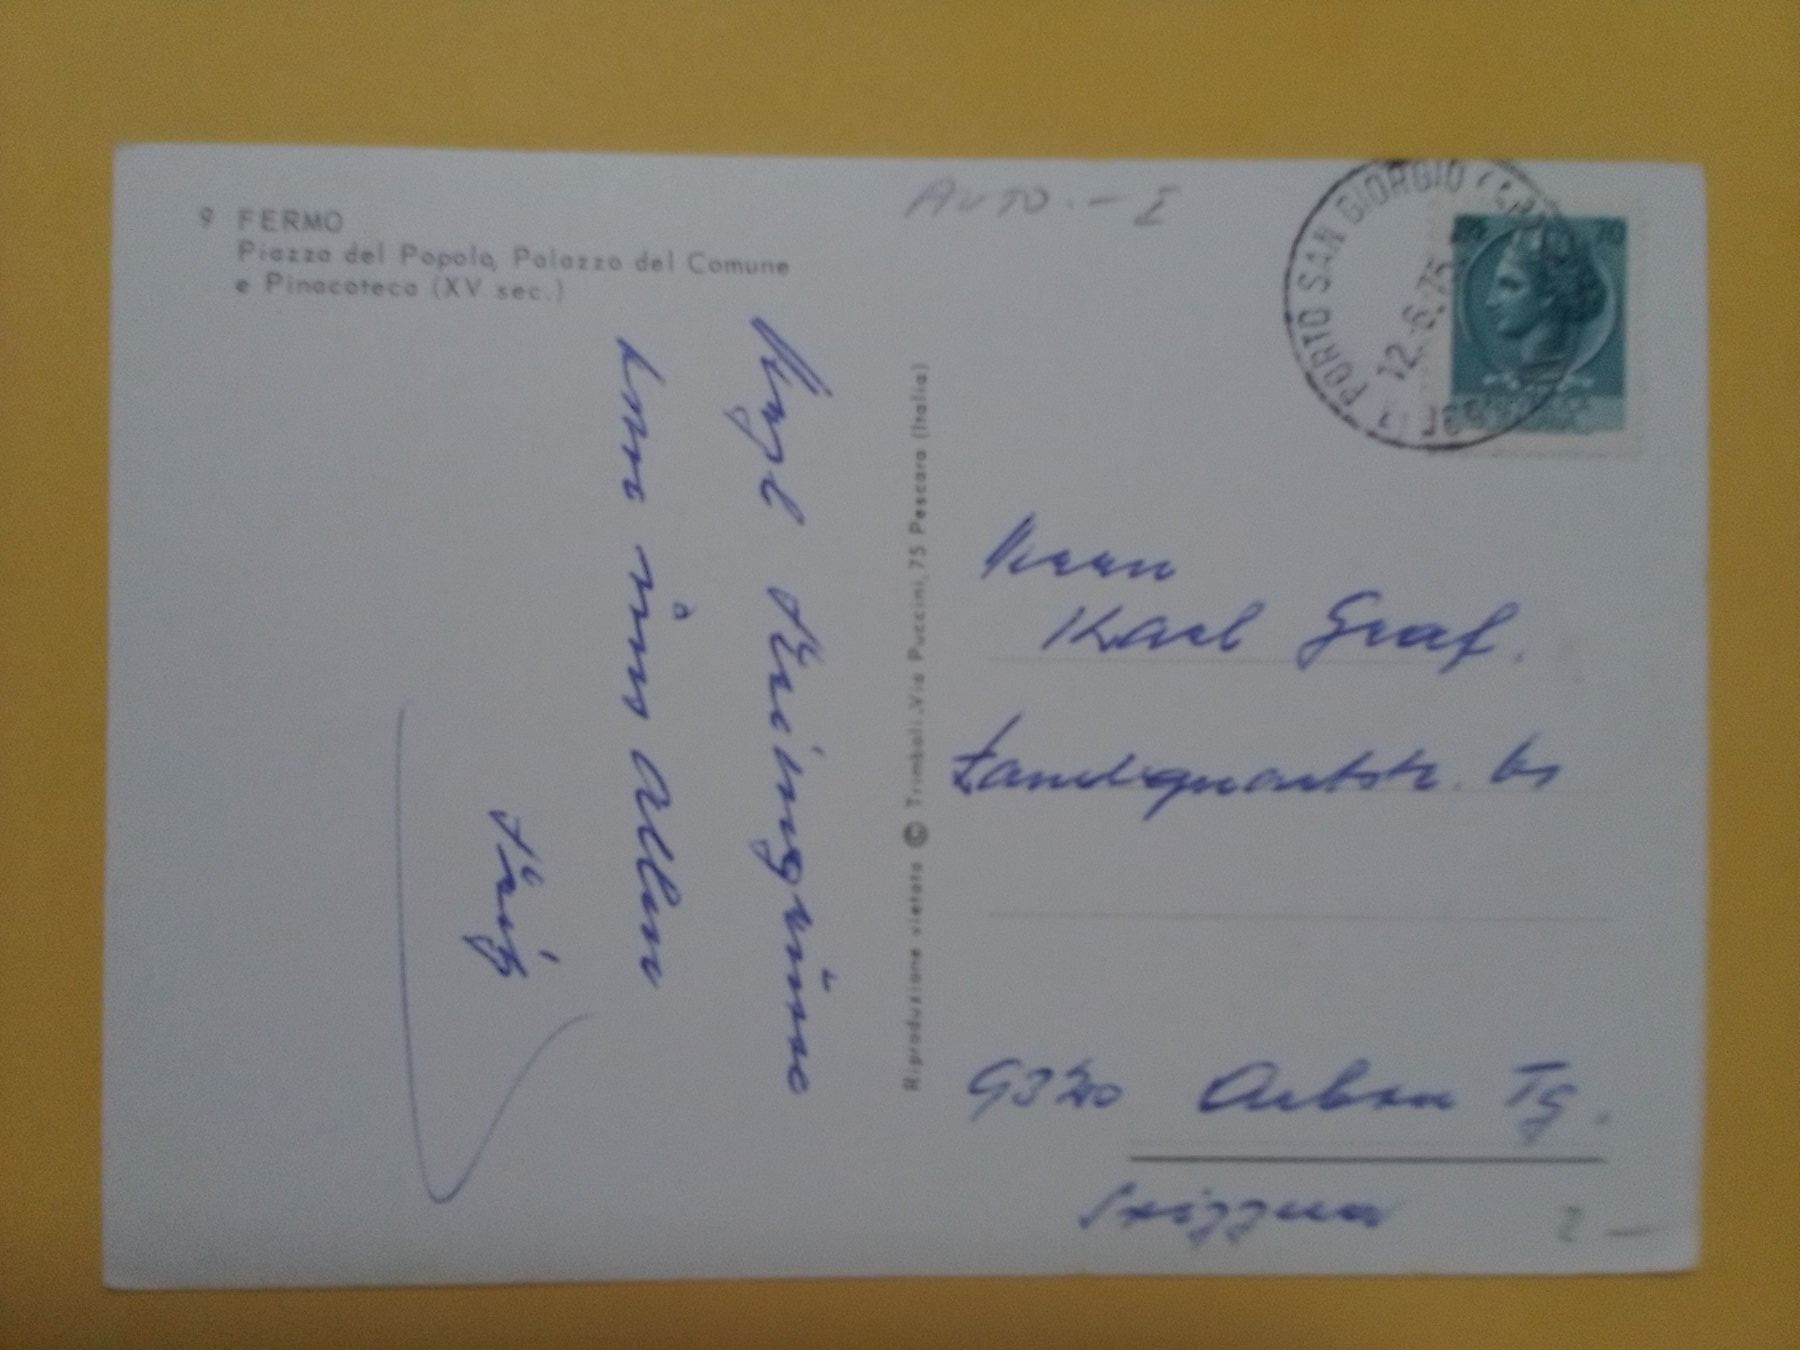 9 FERMO
Piazza del Popolo, Palazzo del Comune
e Pinacoteca (XV sec.)
AUTO.- I
PORTO SAN GIORGIO
12.6.75
70
von uns Allen
Riproduzione vietata © Trimboli, Via Puccini, 75 Pescara (Italia)
Herrn
Karl Graf.
Landquartstr.
9320 Arbon Tg.
Svizzera
2 —